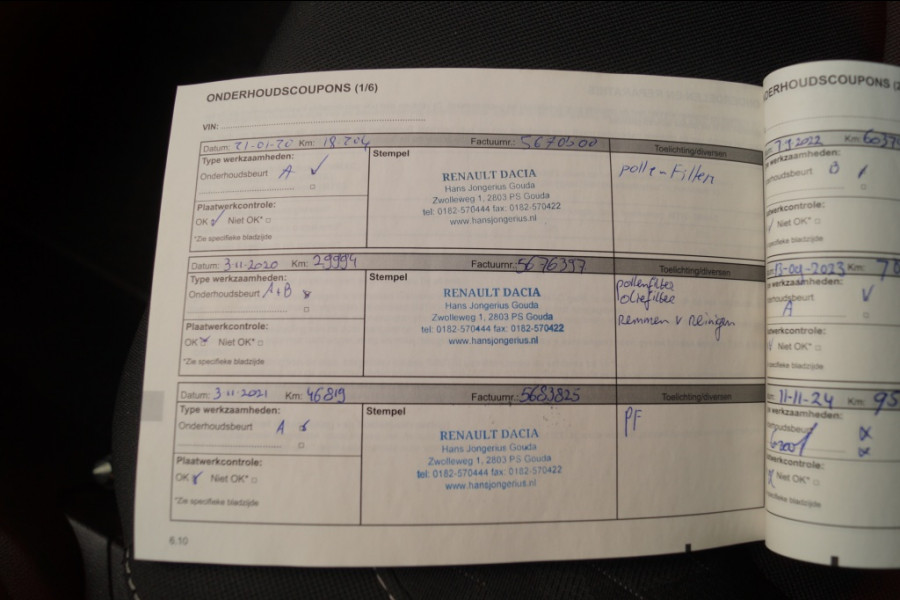 ONDERHOUDSCOUPONS (1/6)
VIN:
Datum: 21-01-20 Km: 18.204 Factuurnr.: 5670500 Toelichting/diversen
Type werkzaamheden:
Onderhoudsbeurt A ✓
Plaatwerkcontrole:
OK ✓ Niet OK* □
*Zie specifieke bladzijde
Stempel
RENAULT DACIA
Hans Jongerius Gouda
Zwolleweg 1, 2803 PS Gouda
tel: 0182-570444 fax: 0182-570422
www.hansjongerius.nl
pollen-Filter
Datum: 3-11-2020 Km: 29994 Factuurnr.: 5676397 Toelichting/diversen
Type werkzaamheden:
Onderhoudsbeurt A+B
Plaatwerkcontrole:
OK Niet OK* □
*Zie specifieke bladzijde
Stempel
RENAULT DACIA
Hans Jongerius Gouda
Zwolleweg 1, 2803 PS Gouda
tel: 0182-570444 fax: 0182-570422
www.hansjongerius.nl
pollenfilter
oliefilter
remmen v reinigen
Datum: 3-11-2021 Km: 46819 Factuurnr.: 5683825 Toelichting/diversen
Type werkzaamheden:
Onderhoudsbeurt A
Plaatwerkcontrole:
OK Niet OK* □
*Zie specifieke bladzijde
Stempel
RENAULT DACIA
Hans Jongerius Gouda
Zwolleweg 1, 2803 PS Gouda
tel: 0182-570444 fax: 0182-570422
www.hansjongerius.nl
PF
6.10
DERHOUDSCOUPONS (2
2022 Km: 6037
werkzaamheden:
rhoudsbeurt B
atwerkcontrole:
Niet OK* □
specifieke bladzijde
13-09-2023 Km: 7
werkzaamheden:
houdsbeurt
A ✓
werkcontrole:
Niet OK* □
specifieke bladzijde
11-11-24 Km: 95
werkzaamheden:
houdsbeurt
werkcontrole:
Niet OK* □
specifieke bladzijde